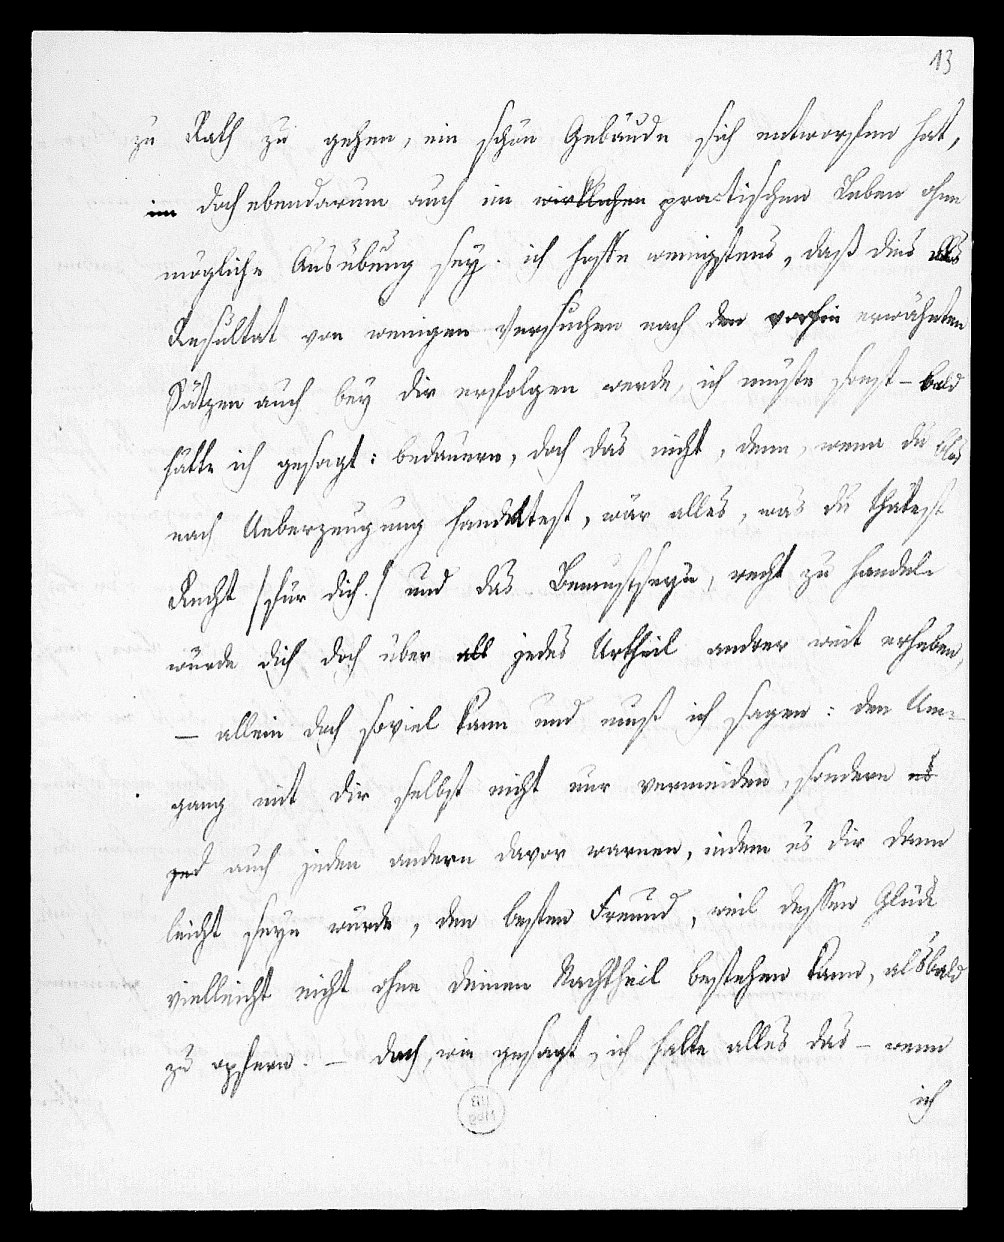 13
zu Rath zu gehen, ein schön Gebäude sich entworfen hat,
im doch ebendarum auch im wirklichen practischen Leben ohne
mögliche Ausübung sey. ich hoffe wenigstens, daß dies als
Resultat von wenigen Versuchen nach den vorhin erwähnten
Sätzen auch bey dir erfolgen werde, ich müste sonst – bald
hätte ich gesagt: bedauern, doch das nicht, denn, wenn du blos
nach Ueberzeugung handeltest, wär alles, was du thätest
Recht /für dich./ und das Bewustseyn, recht zu handeln
würde dich doch über all jedes Urtheil andrer weit erheben,
– allein doch soviel kann und muß ich sagen: den Um-
gang mit dir selbst nicht nur vermeiden, sondern es
jed auch jeden andern davor warnen, indem es dir dann
leicht seyn würde, den besten Freund, weil dessen Glück
vielleicht nicht ohne deinen Nachtheil bestehen kann, alsbald
zu opfern. – doch, wie gesagt, ich halte alles das – wenn
ich